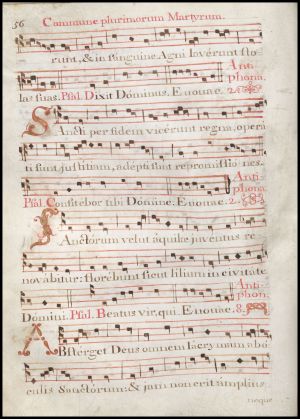 56 Commune plurimorum Martyrum.
runt, & in sanguine Agni laverunt sto
Anti
las suas. Psal. Dixit Dominus. Evovae.
phona.
Sancti per fidem vicerunt regna, operati
sunt justitiam, adepti sunt repromissiones.
Anti
phona.
Psal. Confitebor tibi Domine. Evovae. 2.
Sanctorum velut aquilae juventus re
novabitur: florebunt sicut lilium in civitate
Anti
Domini. Psal. Beatus vir, qui. Evovae. 8.
phon.
Absterget Deus omnem lacrymam ab o
culis Sanctorum: & jam non erit amplius
neque